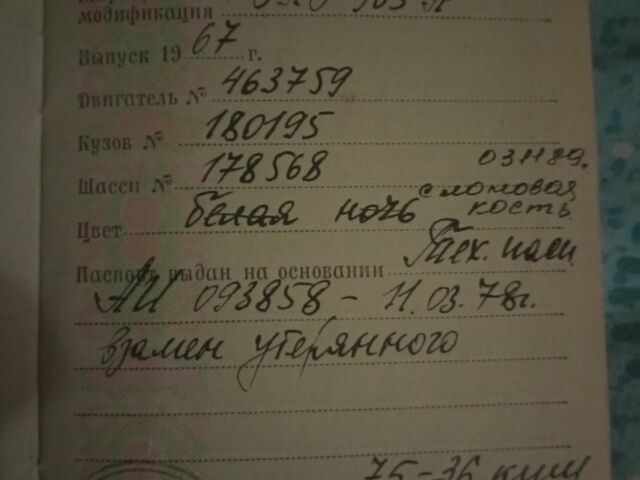 модификация
Выпуск 19 67 г.
Двигатель № 463759
Кузов № 180195
Шасси № 178568
слоновая
Цвет белая ночь кость
Паспорт выдан на основании Тех. пасп.
АИ 093858 - 11.03.78г.
взамен утерянного
75-36